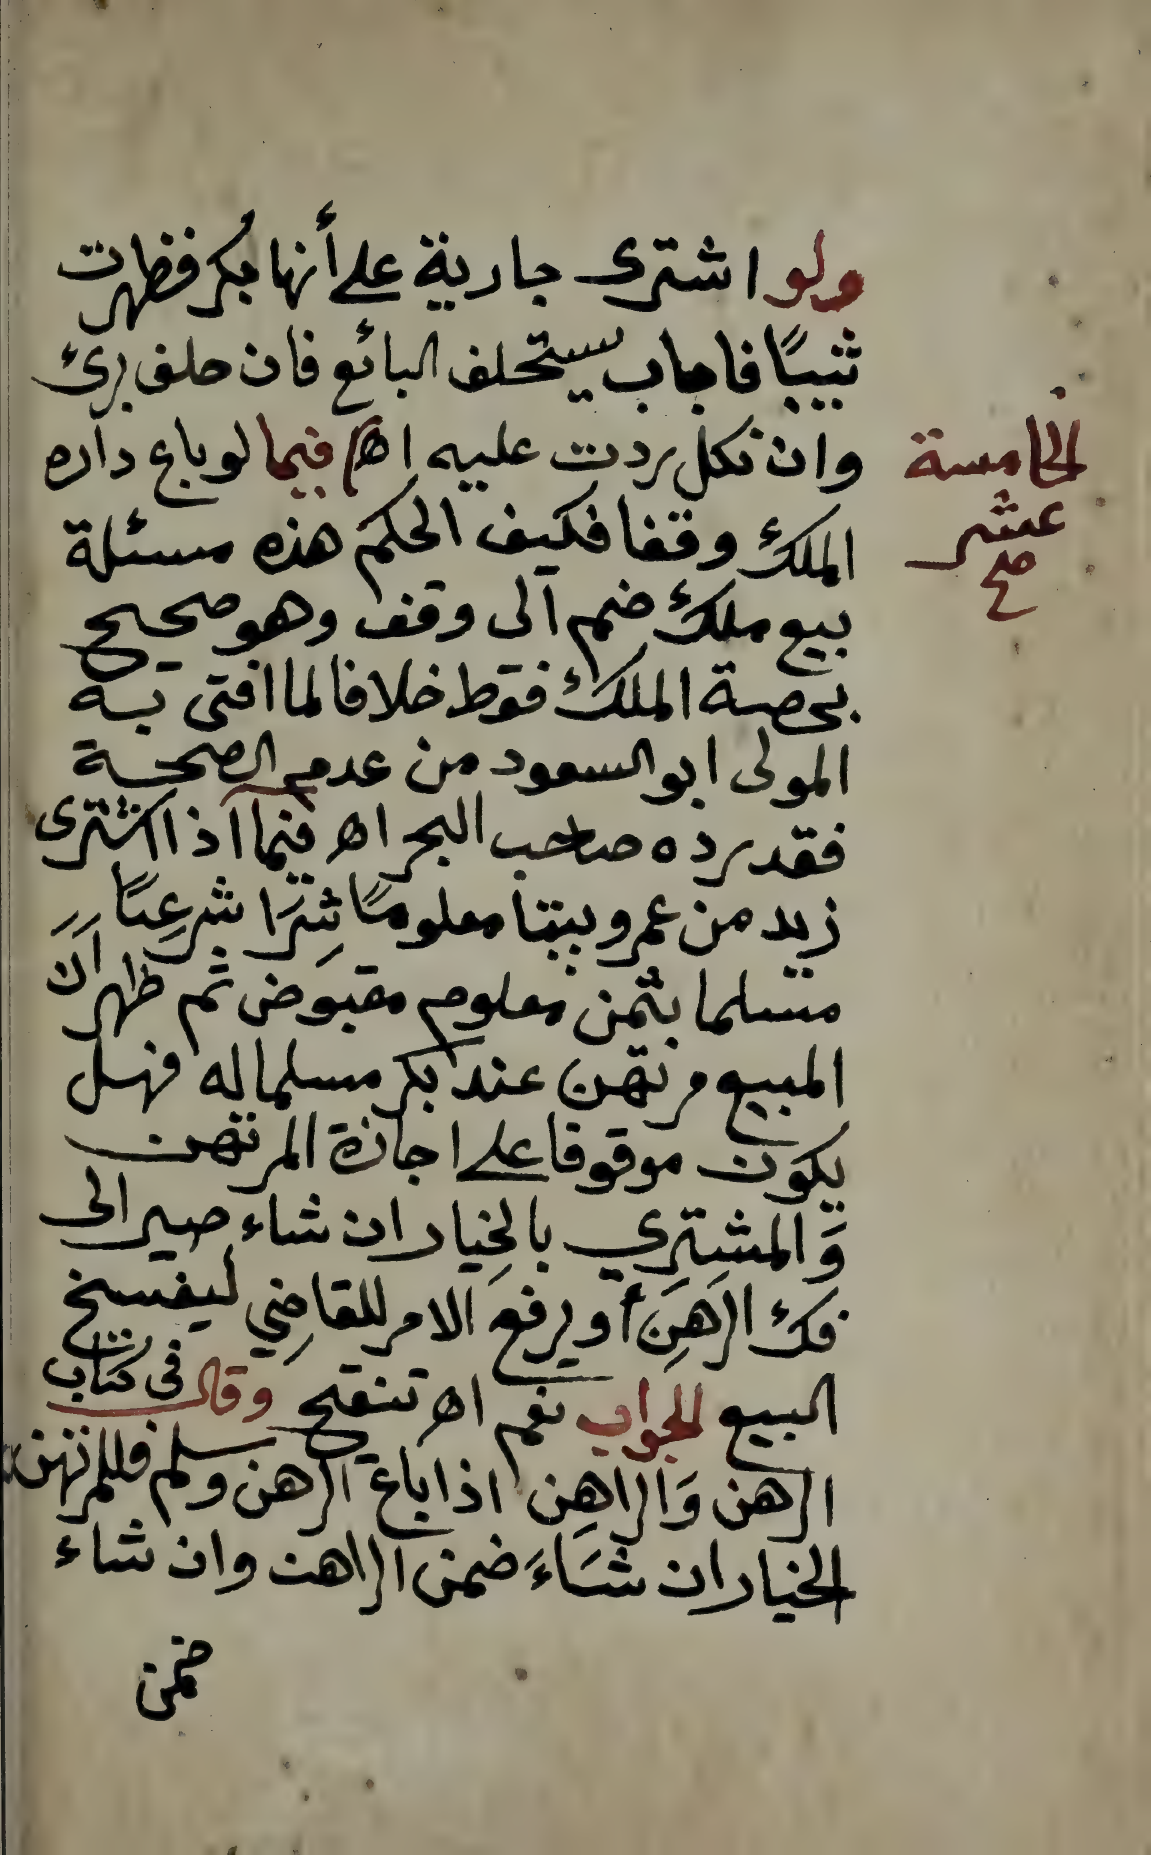 ولو اشترى جارية على أنها بكر فظهرت
ثيبًا فاجاب يستحلف البائع فان حلف برئ
وان نكل ردت عليه اهـ فيما لو باع داره
الخامسة
عشر
صح
الملك وقفا فكيف الحكم هذه مسئلة
بيع ملك ضم الى وقف وهو صحيح
بحصة الملك فقط خلافا لما افتى به
المولى ابو السعود من عدم الصحة
فقد رده صاحب البحر اهـ فيما اذا اشترى
زيد من عمرو بيتا معلومًا شِرَا شرعِيًا
متسلما بثمن معلوم مقبوض ثم ظهر اَنَ
المبيع مرتهن عند بكر مسلما له فهل
يكون موقوفا على اجازة المرتهن
وَالمشتري بالخِيار ان شاء صبر الى
فك الرَهنِ أو يرفع الامر للقاضِي ليفسخ
البيع الجواب نعم اهـ تنقيح وقال فى كتاب
الرهن وَالراهِن اذا باع الرهن وسلم فللمرتهن
الخيار ان شَاءَ ضمن الراهن وان شاء
ضمن